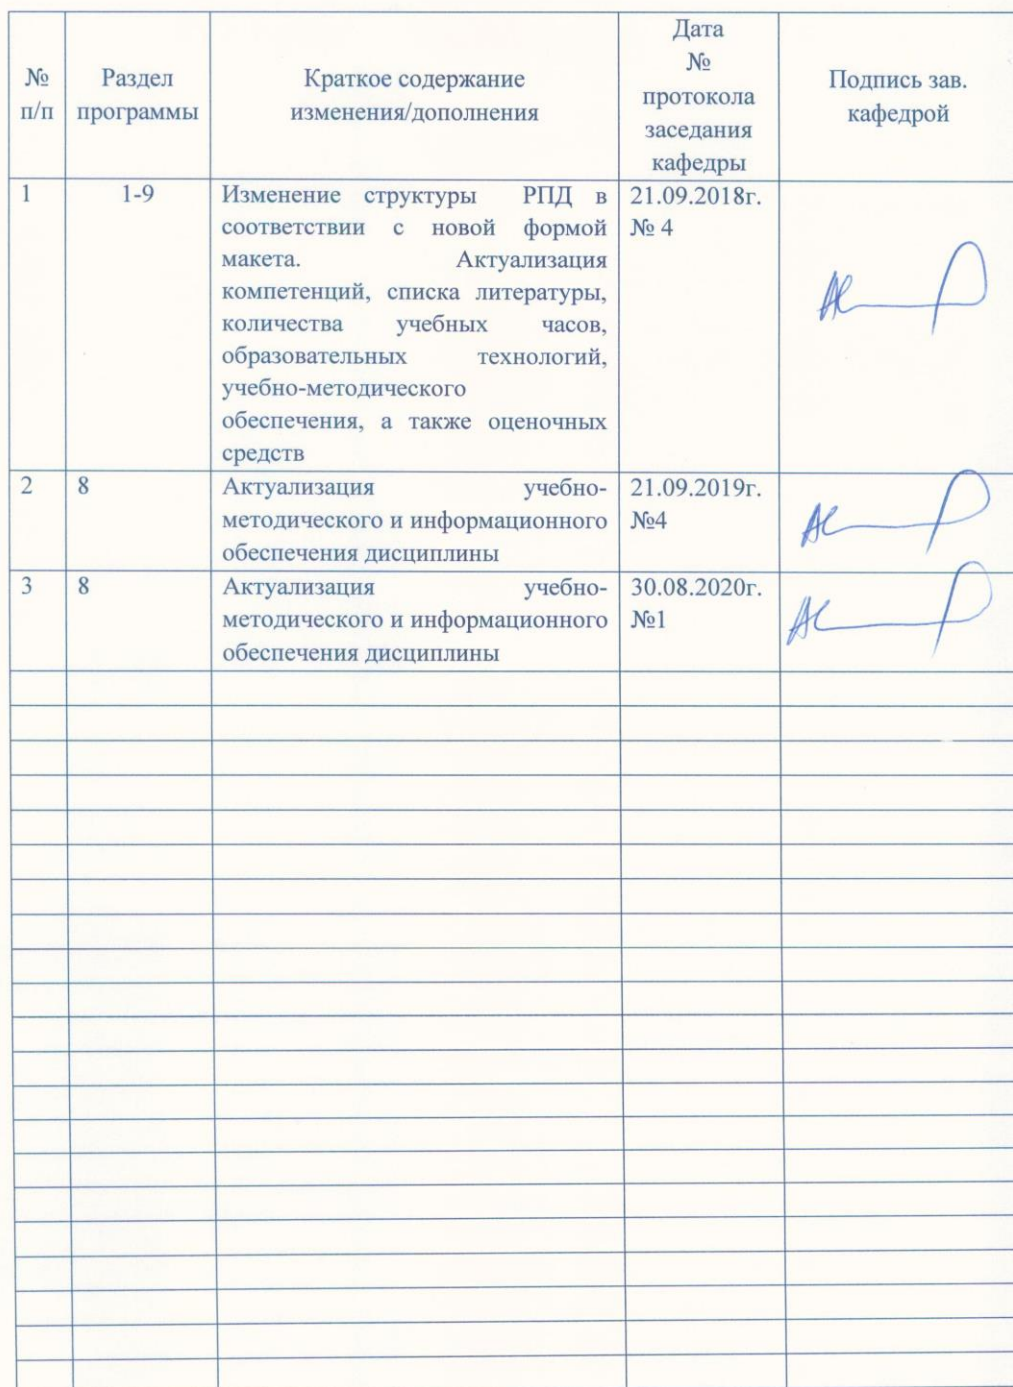 №
п/п
Раздел
программы
Краткое содержание
изменения/дополнения
Дата
№
протокола
заседания
кафедры
Подпись зав.
кафедрой
1
1-9
Изменение структуры РПД в
соответствии с новой формой
макета. Актуализация
компетенций, списка литературы,
количества учебных часов,
образовательных технологий,
учебно-методического
обеспечения, а также оценочных
средств
21.09.2018г.
№ 4
2
8
Актуализация учебно-
методического и информационного
обеспечения дисциплины
21.09.2019г.
№4
3
8
Актуализация учебно-
методического и информационного
обеспечения дисциплины
30.08.2020г.
№1